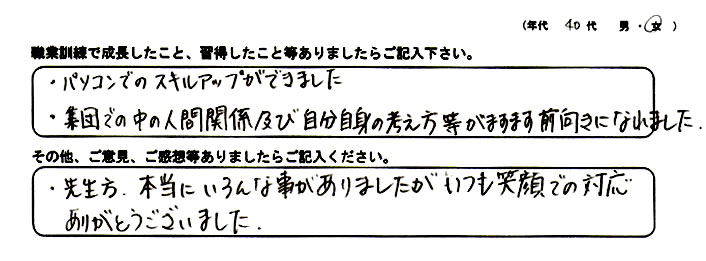 (年代 40代 男・女)
職業訓練で成長したこと、習得したこと等ありましたらご記入下さい。
・パソコンでのスキルアップができました
・集団での中の人間関係及び自分自身の考え方等がますます前向きになれました.
その他、ご意見、ご感想等ありましたらご記入ください。
・先生方.本当にいろんな事がありましたがいつも笑顔での対応
ありがとうございました.